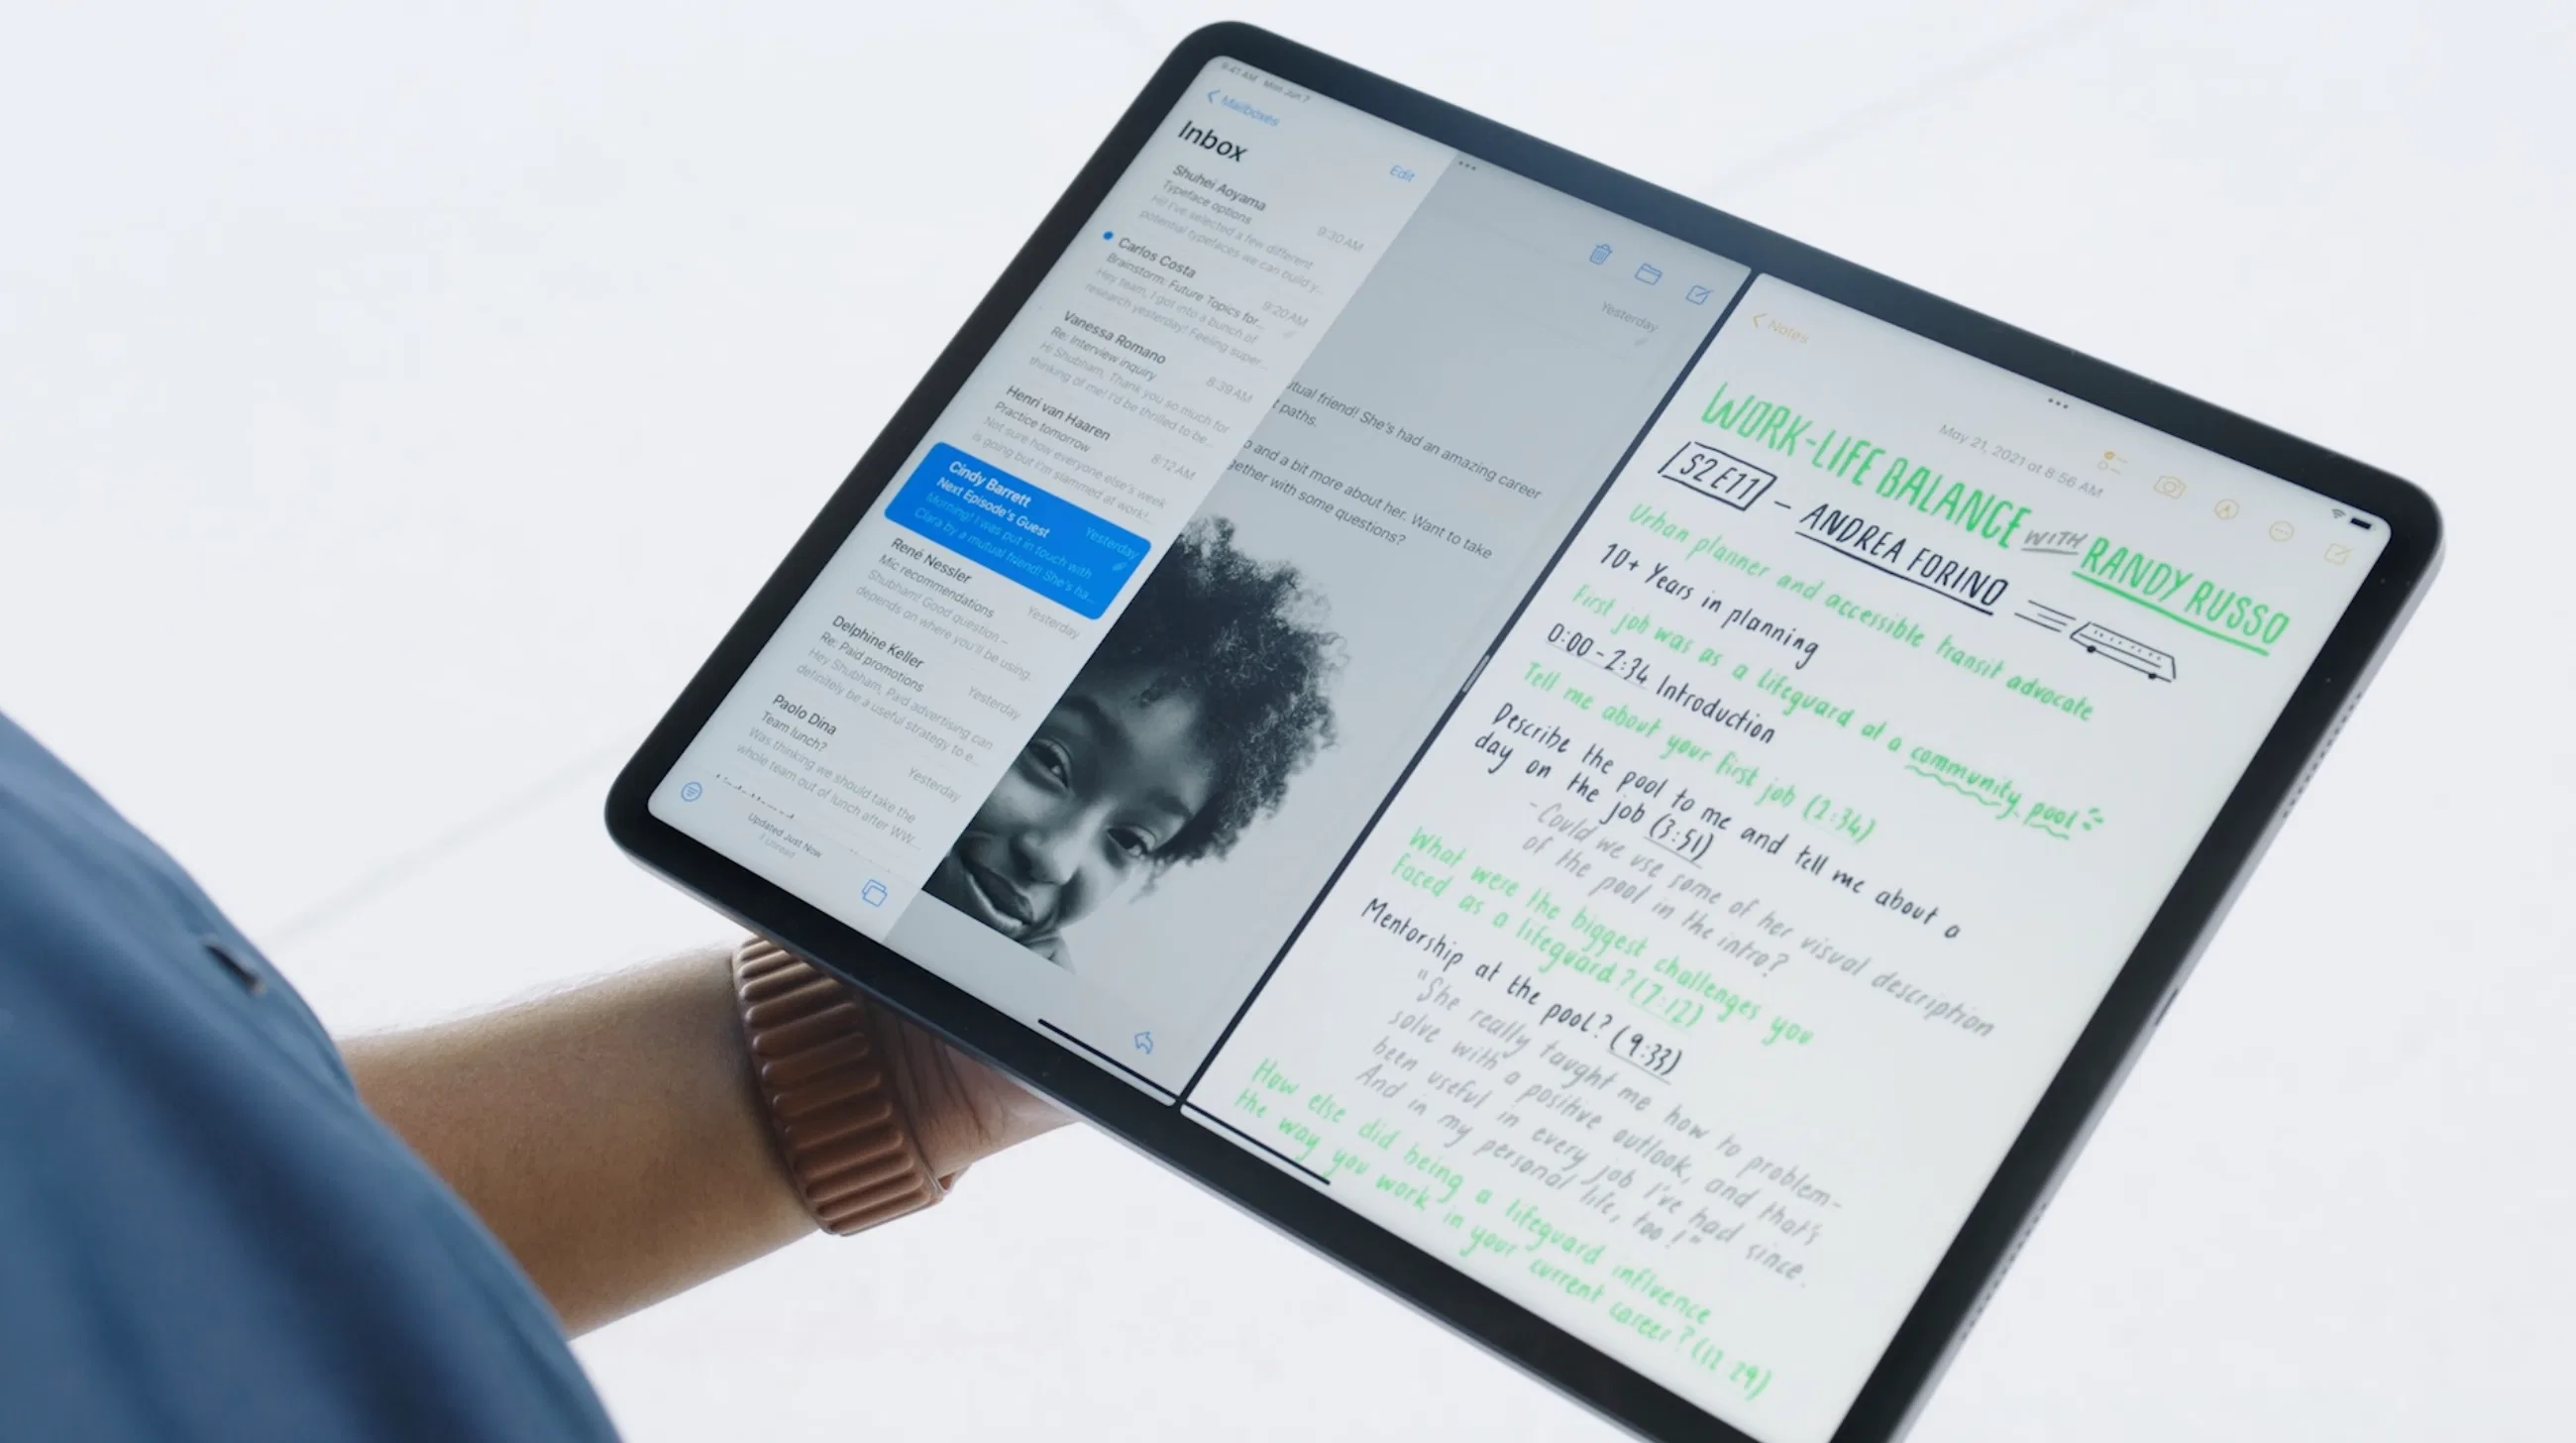 9:41 AM Mon Jun 7
Mailboxes
Inbox
Edit
Shuhei Aoyama
9:30 AM
Typeface options
Hi! I've selected a few different
potential typefaces we can build y...
Carlos Costa
9:20 AM
Brainstorm: Future Topics for...
Hey team, I got into a bunch of
research yesterday! Feeling super...
Vanessa Romano
8:39 AM
Re: Interview inquiry
Hi Shubham, Thank you so much for
thinking of me! I'd be thrilled to be...
Henri van Haaren
8:12 AM
Practice tomorrow
Not sure how everyone else's week
is going but I'm slammed at work!...
Cindy Barrett
Yesterday
Next Episode's Guest
Morning! I was put in touch with
Clara by a mutual friend! She's ha...
René Nessler
Yesterday
Mic recommendations
Shubham! Good question –
depends on where you'll be using.
Delphine Keller
Yesterday
Re: Paid promotions
Hey Shubham, Paid advertising can
definitely be a useful strategy to e...
Paolo Dina
Yesterday
Team lunch?
Was thinking we should take the
whole team out of lunch after WW...
Updated Just Now
1 Unread
Yesterday
utual friend! She's had an amazing career
t paths.
o and a bit more about her. Want to take
gether with some questions?
Notes
May 21, 2021 at 8:56 AM
WORK-LIFE BALANCE WITH RANDY RUSSO
S2 E11 – ANDREA FORINO
Urban planner and accessible transit advocate
10+ Years in planning
First job was as a lifeguard at a community pool
0:00 - 2:34 Introduction
Tell me about your first job (2:34)
Describe the pool to me and tell me about a
day on the job (3:51)
-Could we use some of her visual description
of the pool in the intro?
What were the biggest challenges you
faced as a lifeguard? (7:12)
Mentorship at the pool? (9:33)
"She really taught me how to problem-
solve with a positive outlook, and that's
been useful in every job I've had since.
And in my personal life, too!"
How else did being a lifeguard influence
the way you work in your current career? (12 29)